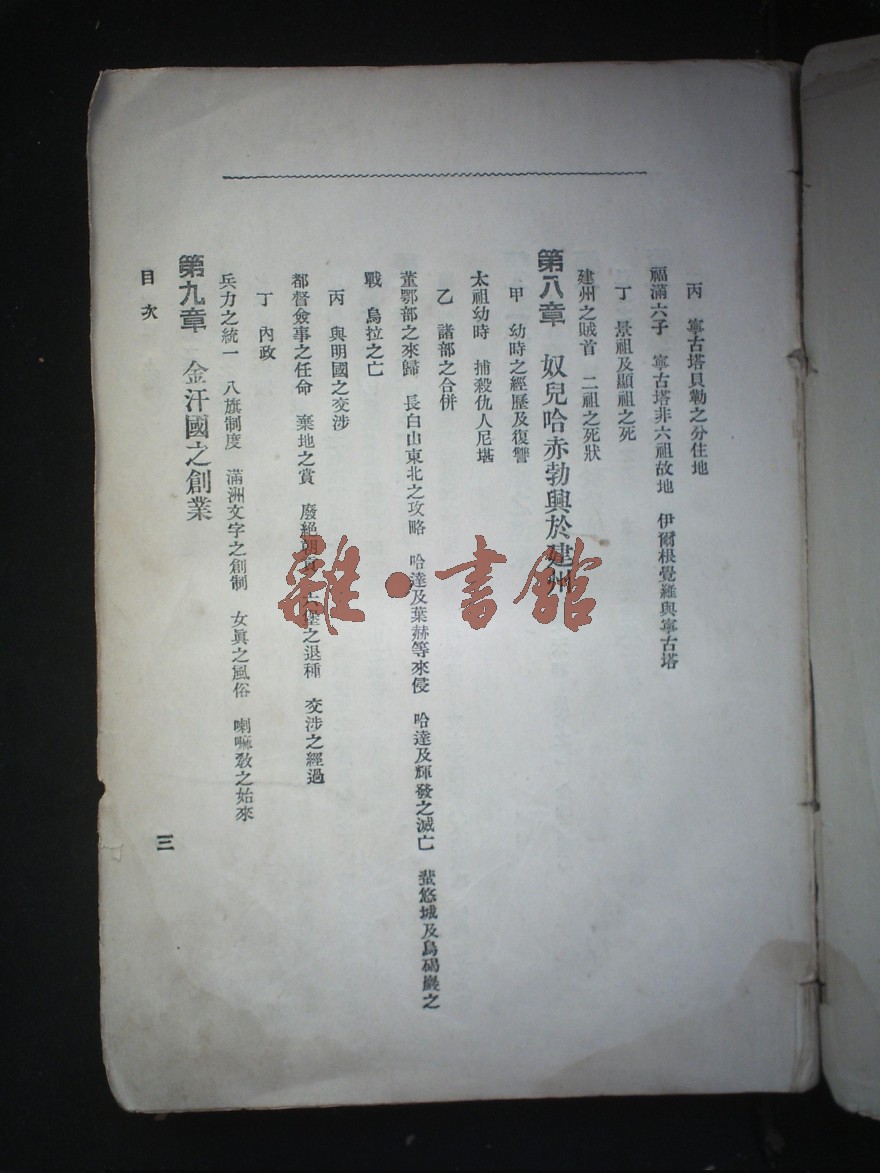 丙　寧古塔貝勒之分住地
福滿六子　寧古塔非六祖故地　伊爾根覺羅與寧古塔
丁　景祖及顯祖之死
建州之賊首　二祖之死狀
第八章　奴兒哈赤勃興於建州
甲　幼時之經歷及復讐
太祖幼時　捕殺仇人尼堪
乙　諸部之合併
董鄂部之來歸　長白山東北之攻略　哈達及葉赫等來侵　哈達及輝發之滅亡　蜚悠城及烏碣巖之
戰　烏拉之亡
丙　與明國之交涉
都督僉事之任命　棄地之賞　廢絕朝貢　六堡之退種　交涉之經過
丁　內政
兵力之統一　八旗制度　滿洲文字之創制　女眞之風俗　喇嘛敎之始來
第九章　金汗國之創業
目次
三
雜·書館